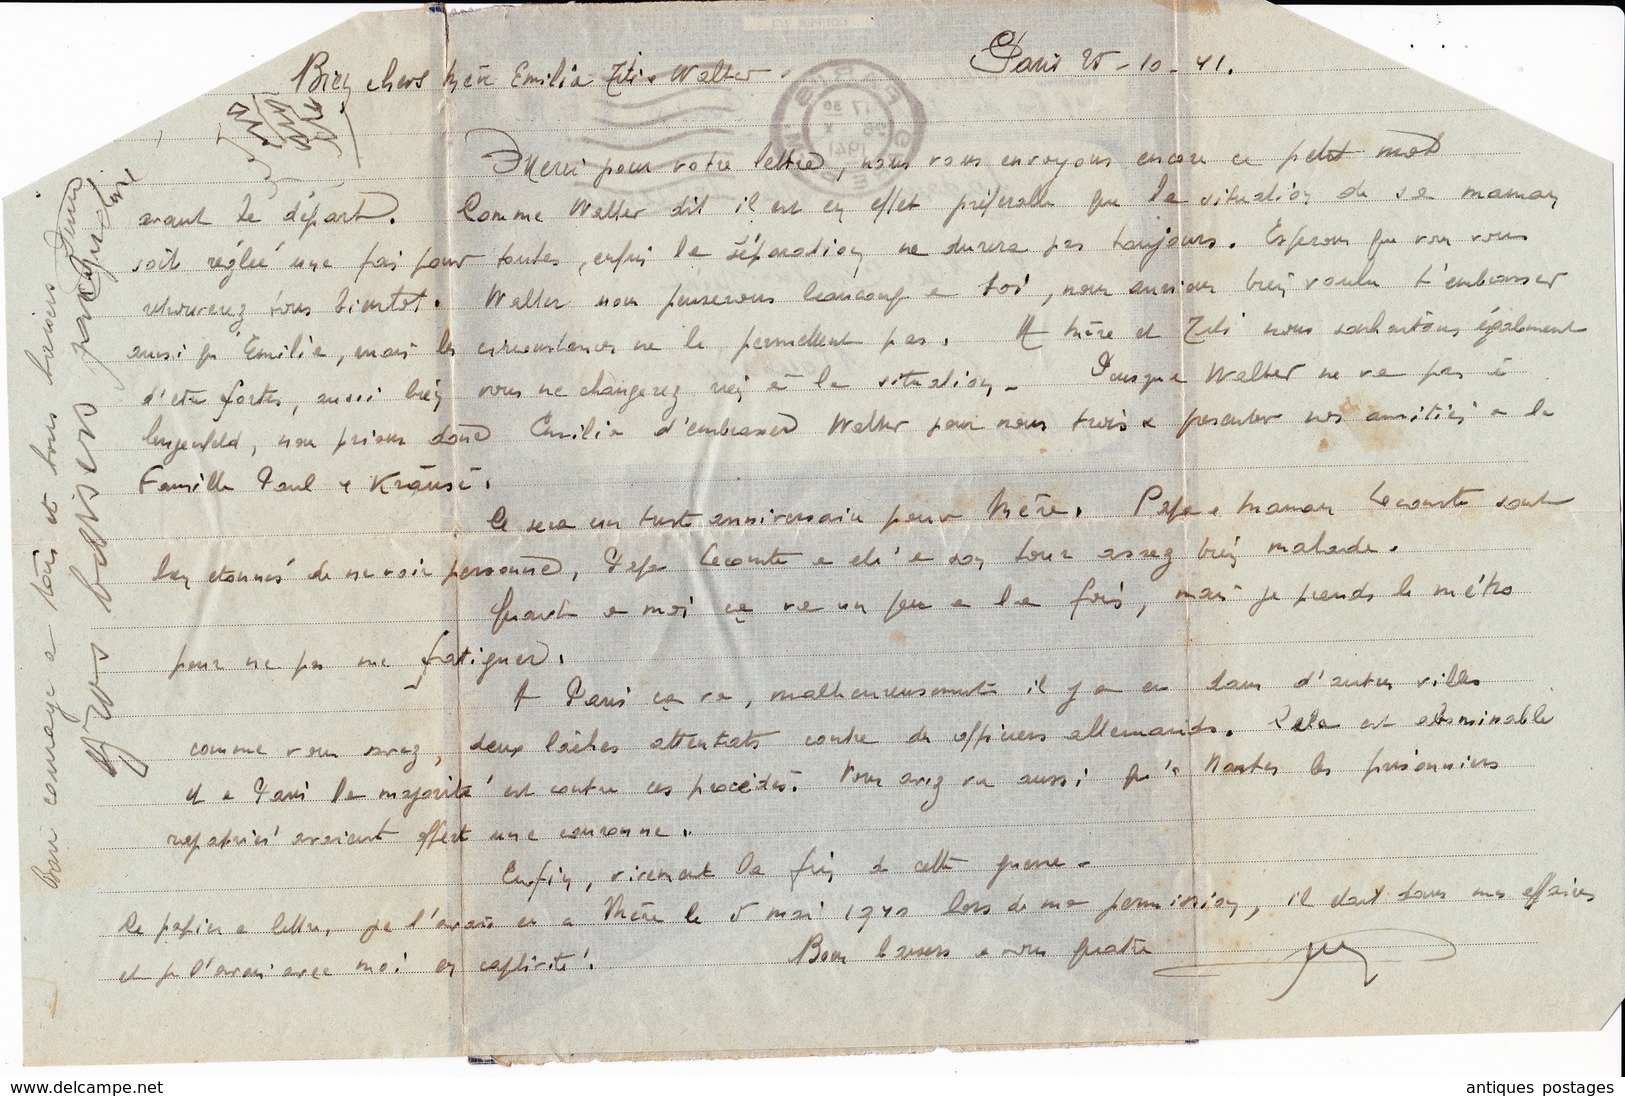 Bien chers Mère Emilia Titi & Walter
Paris 25-10-41.
Merci pour votre lettre, nous vous envoyons encore ce petit mot
avant le départ. Comme Walter dit il est en effet préférable que la situation de sa maman
soit réglée une fois pour toutes, enfin la séparation ne durera pas toujours. Esperons que vous vous
retrouverez tous bientot. Walter nous penserons beaucoup a toi, nous aurions bien voulu t'embrasser
aussi qu'Emilia, mais les circonstances ne le permettent pas. A Mère et Titi nous souhaitons également
d'etre fortes, aussi bien vous ne changerez rien à la situation - Puisque Walter ne va pas à
lengenfeld, nous prions donc Emilia d'embrasser Walter pour nous trois & presenter nos amitiés a la
Famille Paul & Krause.
Ce sera un triste anniversaire pour Mère. Papa & Maman Lecomte sont
bien etonnés de ne voir personne, Papa Lecomte a eté a son tour assez bien malade.
Quant a moi ça va un peu a la fois, mais je prends le métro
pour ne pas me fatiguer.
A Paris ça va, malheureusement il y a eu dans d'autres villes
comme vous savez, deux lâches attentats contre des officiers allemands. Cela est abominable
et a Paris la majorité est contre ces procédés. Vous avez vu aussi qu'a Nantes les prisonniers
rapatriés avaient offert une couronne.
Enfin, vivement la fin de cette guerre -
Le papier a lettre, je l'avais eu a Mère le 5 mai 1940 lors de ma permission, il etait dans mes affaires
et je l'avais avec moi en captivité.
Bons baisers a vous quatre
bon courage a tous et bons baisers
gros baisers
PARIS
17 30
25 X
1941
COUPER ICI
www.delcampe.net
antiques postages